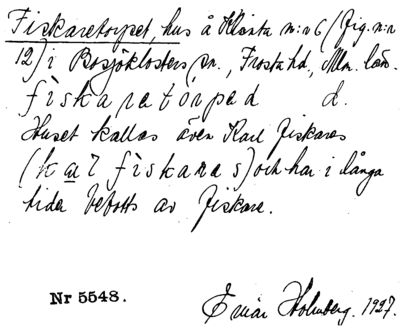 Fiskaretorpet, hus å Klinta n:r 6 (fig. n:r
12) i Bosjöklosters sn., Frosta hd, Mlm. län.
fiskaretòrped d.
Huset kallas även Karl fiskares
(kal fiskares) och har i långa
tider bebotts av fiskare.
Nr 5548.
Einar Holmberg. 1927.